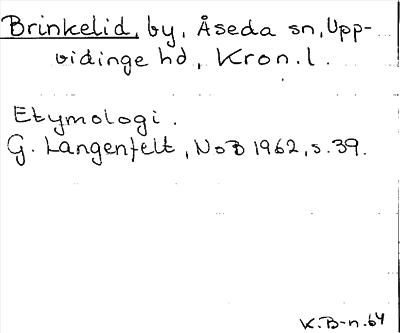 Brinkelid, by, Åseda sn, Upp-
vidinge hd, Kron.l.
Etymologi.
G. Langenfelt, NoB 1962, s. 39.
K.B-n.64